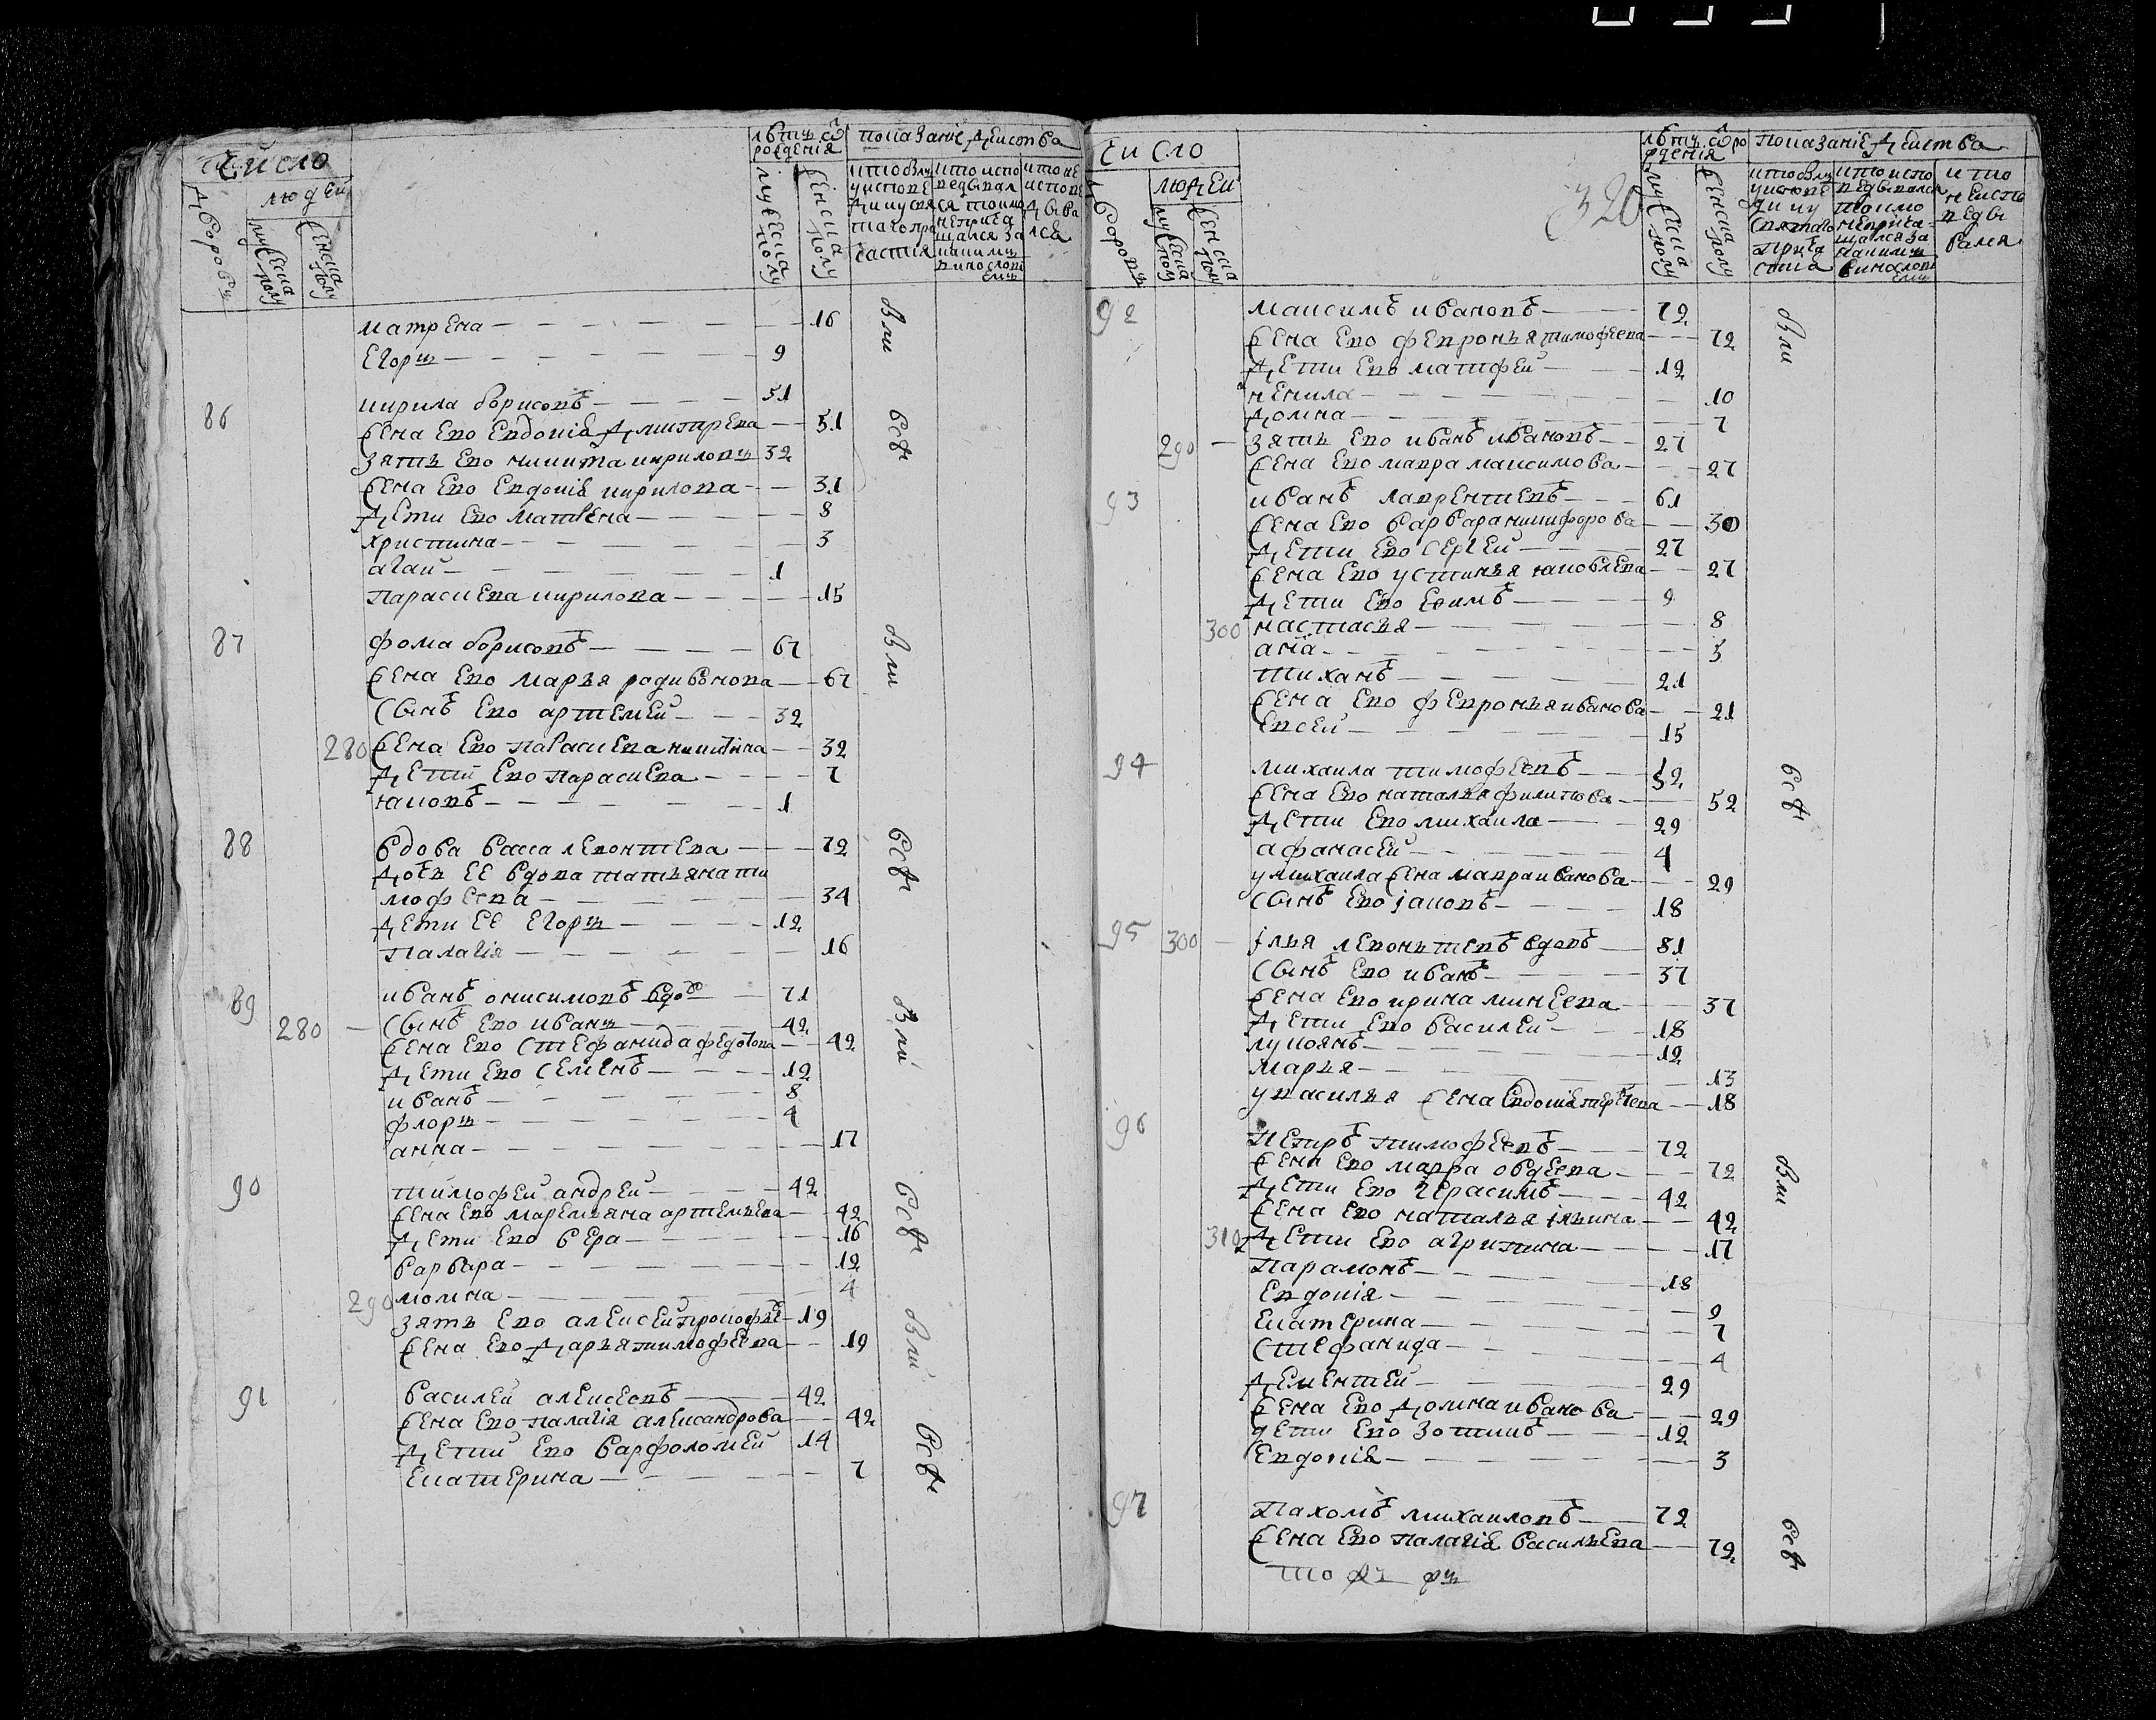 Число
людей
дворовъ
мужеска полу
женска полу
лѣтъ ѿ рожденія
мужеска полу
женска полу
показаніе действа
матрена — 16
Егоръ — 9
Вли
86 кирила борисовъ — 51
жена Ево Евдокіѧ дмитрева — 51
всѣ
зять Ево никита кириловъ 32
жена Ево Евдокіѧ кирилова — 31
дети Ево матвена — 8
христина — 3
агаи — 1
параскева кирилова — 15
87 фома борисовъ — 67
Вли
жена Ево марья родивонова — 67
сынъ Ево артемей — 32
280 жена Ево параскева никитина — 32
дети Ево параскева — 7
яковъ — 1
88 вдова васса левонтева — 72
всѣ
дочь ЕЕ вдова татьяна ти
мофеева — 34
дети ЕЕ Егоръ — 12
палагія — 16
89 иванъ онисимовъ вдов — 71
Вли
280 — сынъ Ево иванъ — 42
жена Ево стефанида федотова — 42
дети Ево семенъ — 12
иванъ — 8
флоръ — 4
анна — 17
90 тимофей андрей — 42
всѣ
жена Ево маремьяна артемьева — 42
дети Ево вера — 16
варвара — 12
290 — 4
зять Ево алексей прокофье — 19
Вли
жена Ево дарья тимофеева — 19
91 василей алексеевъ — 42
жена Ево палагія александрова — 42
всѣ
дети Ево варфоломей 14
Екатерина — 7
число
людей
дворовъ
мужеска полу
женска полу
320
лѣтъ ѿ рожденія
мужеска полу
женска полу
показаніе действа
92 максимъ ивановъ — 72
Вли
жена Ево февронья тимофеева — 72
дети Ево матфей — 12
ненила — 10
домна — 7
290 — зять Ево иванъ ивановъ — 27
жена Ево мавра максимова — 27
93 иванъ лаврентевъ — 61
жена Ево варвара никифорова — 30
дети Ево сергей — 27
жена Ево устинья яковлева — 27
дети Ево Ефимъ — 9
300 настасья — 8
анѧ — 3
тиханъ — 21
жена Ево февронья иванова — 21
Евсей — 15
94 михаила тимофеевъ — 52
всѣ
жена Ево наталья филипова — 52
дети Ево михаила — 29
афанасей — 4
у михаила жена мавра иванова — 29
сынъ Ево іаковъ — 18
95 300 — ілья левоньтевъ вдовъ — 81
сынъ Ево иванъ — 37
жена Ево ирина минеева — 37
дети Ево василей — 18
лукоянъ — 12
марья — 13
у василья жена Евдокіѧ — 18
96 петръ тимофеевъ — 72
Вли
жена Ево марфа овдеева — 72
дети Ево герасимъ — 42
жена Ево наталья ільина — 42
310 дети Ево агрипина — 17
парамонъ — 18
Евдокія — 9
Екатерина — 7
стефанида — 4
дементей — 29
жена Ево домна иванова — 29
дети Ево зотикъ — 12
Евдокіѧ — 3
97 пахомъ михаиловъ — 72
всѣ
жена Ево палагіѧ васильева — 72